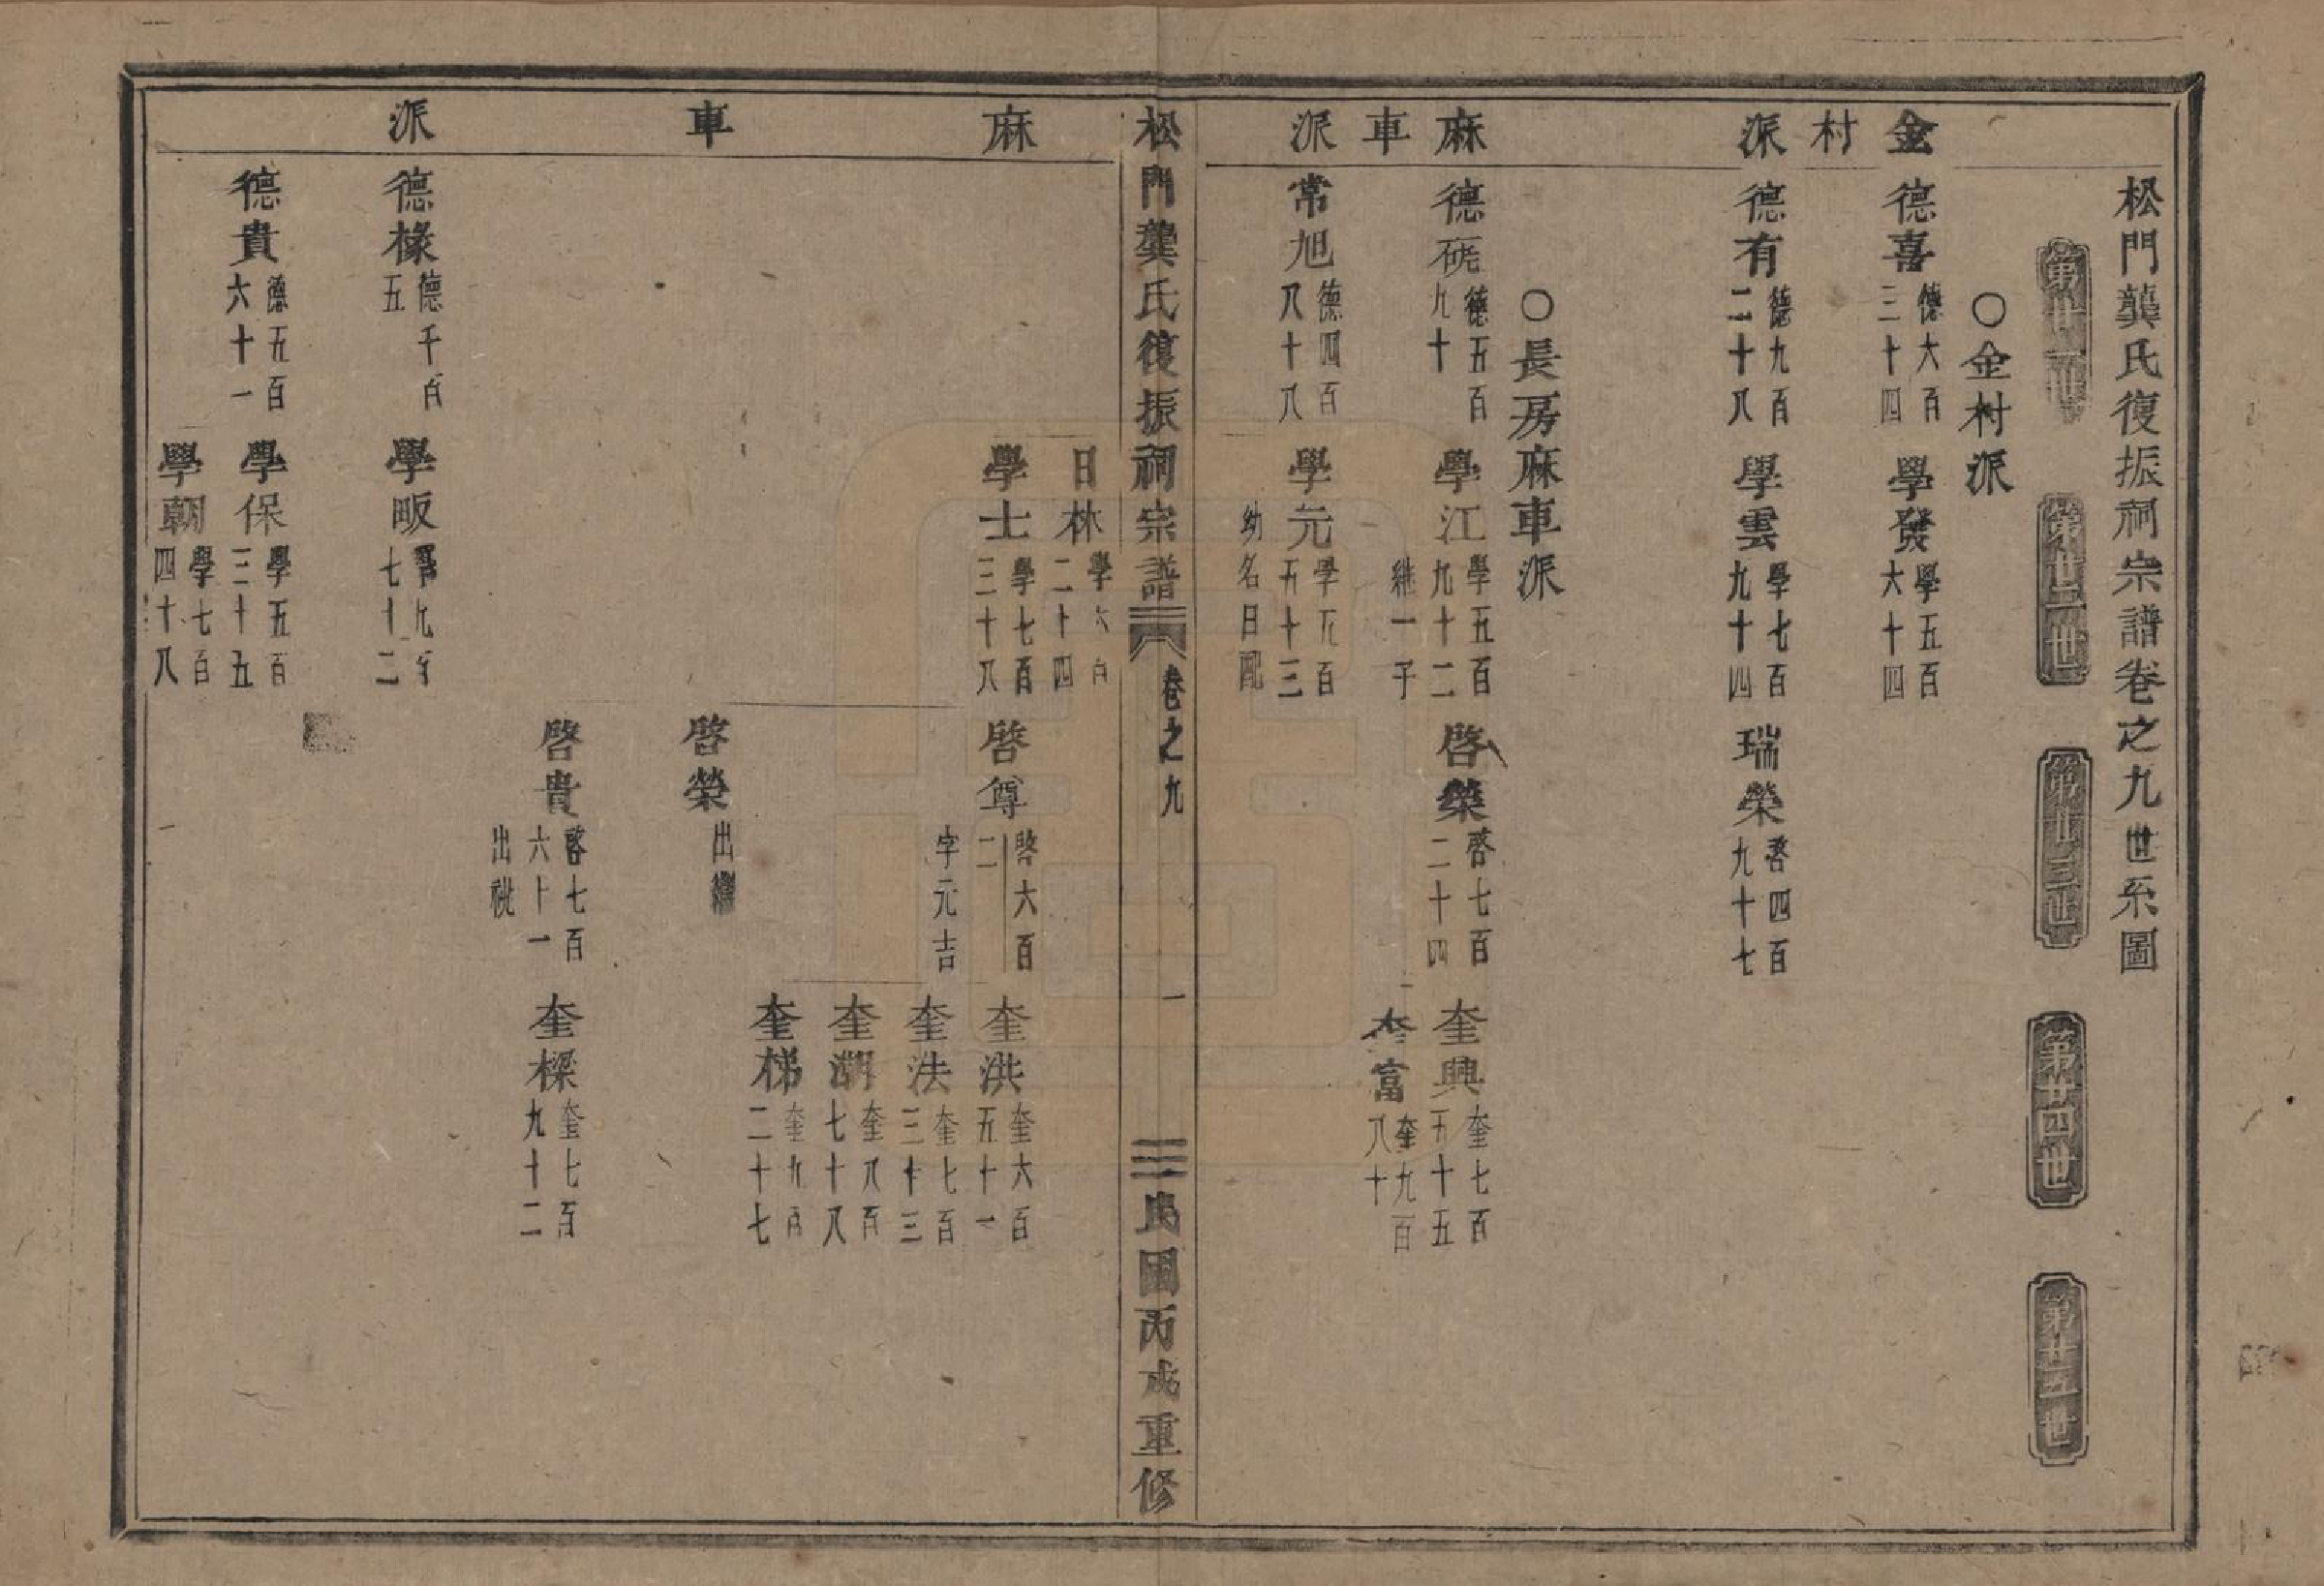 松門龔氏復振祠宗譜卷之九世系圖
第廿一世
第廿二世
第廿三世
第廿四世
第廿五世
○金村派
金村派
德喜 德六百三十四
學發 學五百六十四
德有 德九百二十八
學雲 學七百九十四
瑞榮 啓四百九十七
○長房麻車派
麻車派
德硗 德五百九十
學江 學五百九十二 継一子
啓榮 啓七百二十四
奎興 奎七百五十五
奎富 奎九百八十
常旭 德四百八十八
學元 學五百五十三 幼名日配
松門龔氏復振祠宗譜 卷之九 一 民國丙戌重修
麻車派
日林 學六百二十四
學士 學七百三十八
啓尊 啓六百二 字元吉
奎洪 奎六百五十一
奎法 奎七百三十三
奎湖 奎八百七十八
奎梯 奎九百二十七
啓榮 出繼
啓貴 啓七百六十一 出祧
奎樑 奎七百九十二
德椽 德千百五
學畈 學九百七十二
德貴 德五百六十一
學保 學五百三十五
學朝 學七百四十八